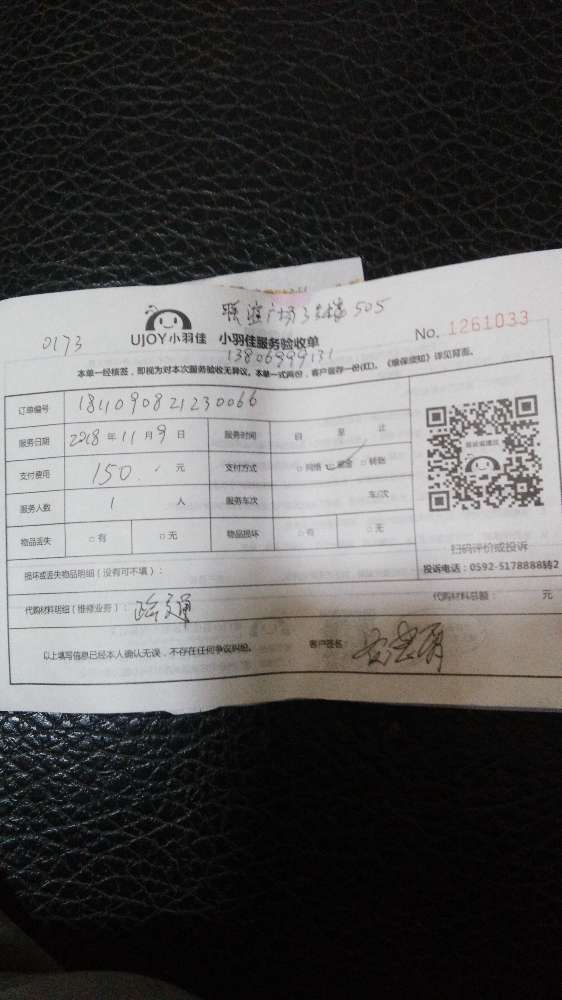 505
0173
UJOY小羽佳 小羽佳服务验收单
No. 1261033
13806999131
本单一经核签，即视为对本次服务验收无异议。本单一式两份，客户留存一份(红)。《维保须知》详见背面。
订单编号 1811090821230066
服务日期 2018 年 11 月 9 日 服务时间 自 至 止
支付费用 150. 元 支付方式 □网络 □现金 □转账
服务人数 1 人 服务车次 车/次
物品丢失 □有 □无 物品损坏 □有 □无
扫码评价或投诉
投诉电话：0592-5178888转2
损坏或丢失物品明细（没有可不填）：
代购材料明细（维修业务）： 代购材料总额： 元
以上填写信息已经本人确认无误，不存在任何争议纠纷。 客户签名：